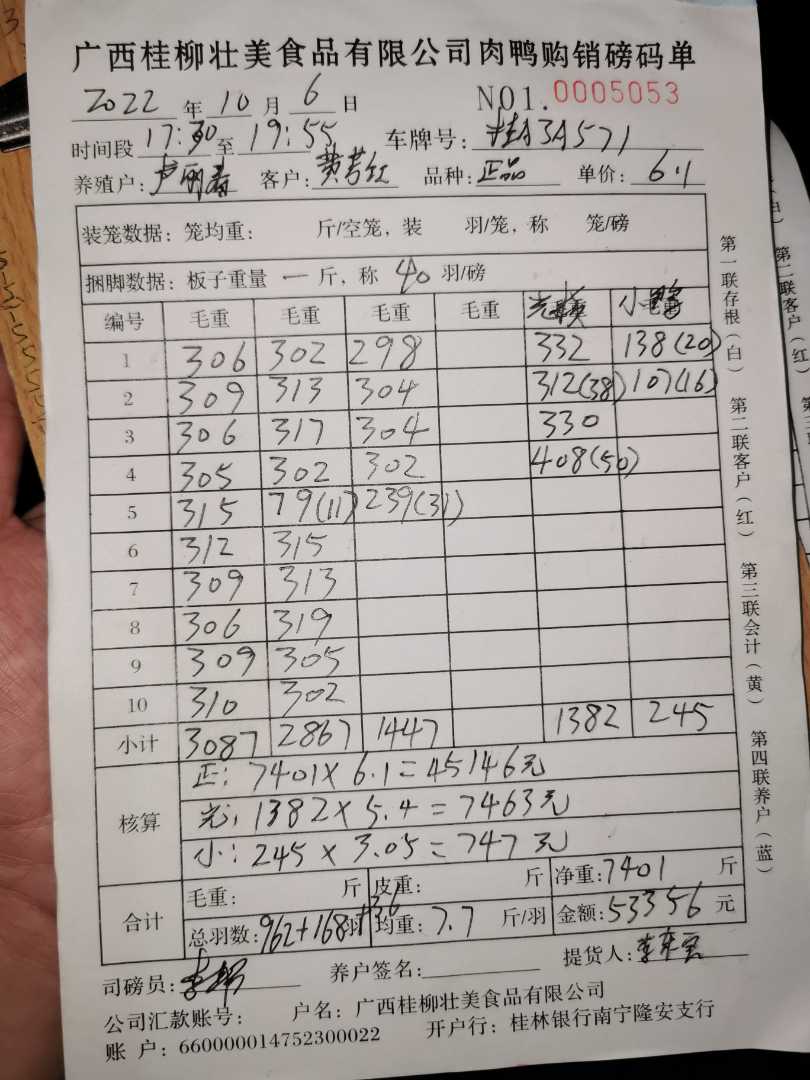 广西桂柳壮美食品有限公司肉鸭购销磅码单
2022 年 10 月 6 日 NO1. 0005053
时间段 17:30 至 19:55 车牌号: 桂A3A571
养殖户: 卢丽春 客户: 黄若红 品种: 正品 单价: 6.1
装笼数据: 笼均重: 斤/空笼, 装 羽/笼, 称 笼/磅
捆脚数据: 板子重量 一 斤, 称 40 羽/磅
编号 毛重 毛重 毛重 毛重 小鸭
1 306 302 298 332 138(20)
2 309 313 304 312(38) 107(16)
3 306 317 304 330
4 305 302 302 408(50)
5 315 79(11) 239(31)
6 312 315
7 309 313
8 306 319
9 309 305
10 310 302
小计 3087 2867 1447 1382 245
核算
正: 7401 × 6.1 = 45146元
光: 1382 × 5.4 = 7463元
小: 245 × 3.05 = 747 元
合计
毛重: 斤 皮重: 斤 净重: 7401 斤
总羽数: 962+168羽+36 均重: 7.7 斤/羽 金额: 53356 元
司磅员: 养户签名: 提货人:
公司汇款账号: 户名: 广西桂柳壮美食品有限公司
账 户: 660000014752300022 开户行: 桂林银行南宁隆安支行
第一联存根(白)
第二联客户(红)
第三联会计(黄)
第四联养户(蓝)